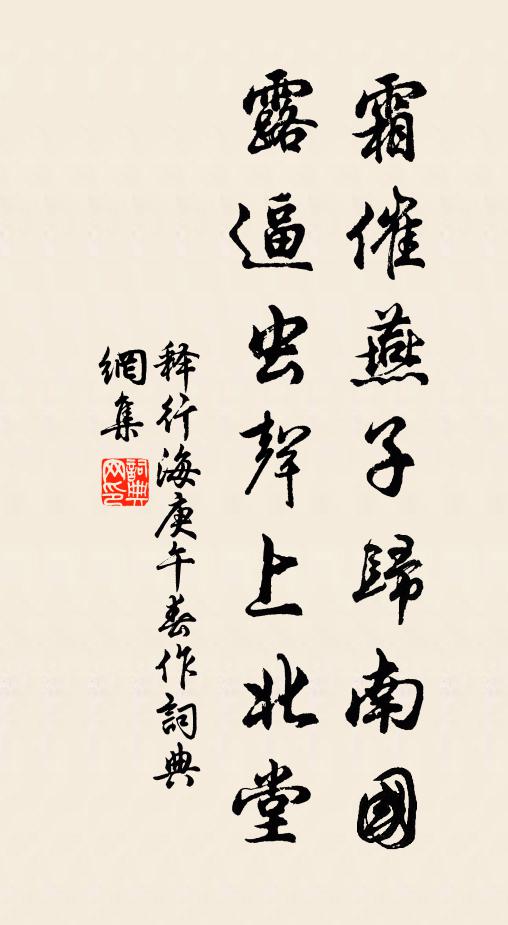 霜催燕子歸南國
露逼虫聲上北堂
释行海庚午春作詞典
網集
詞典網印